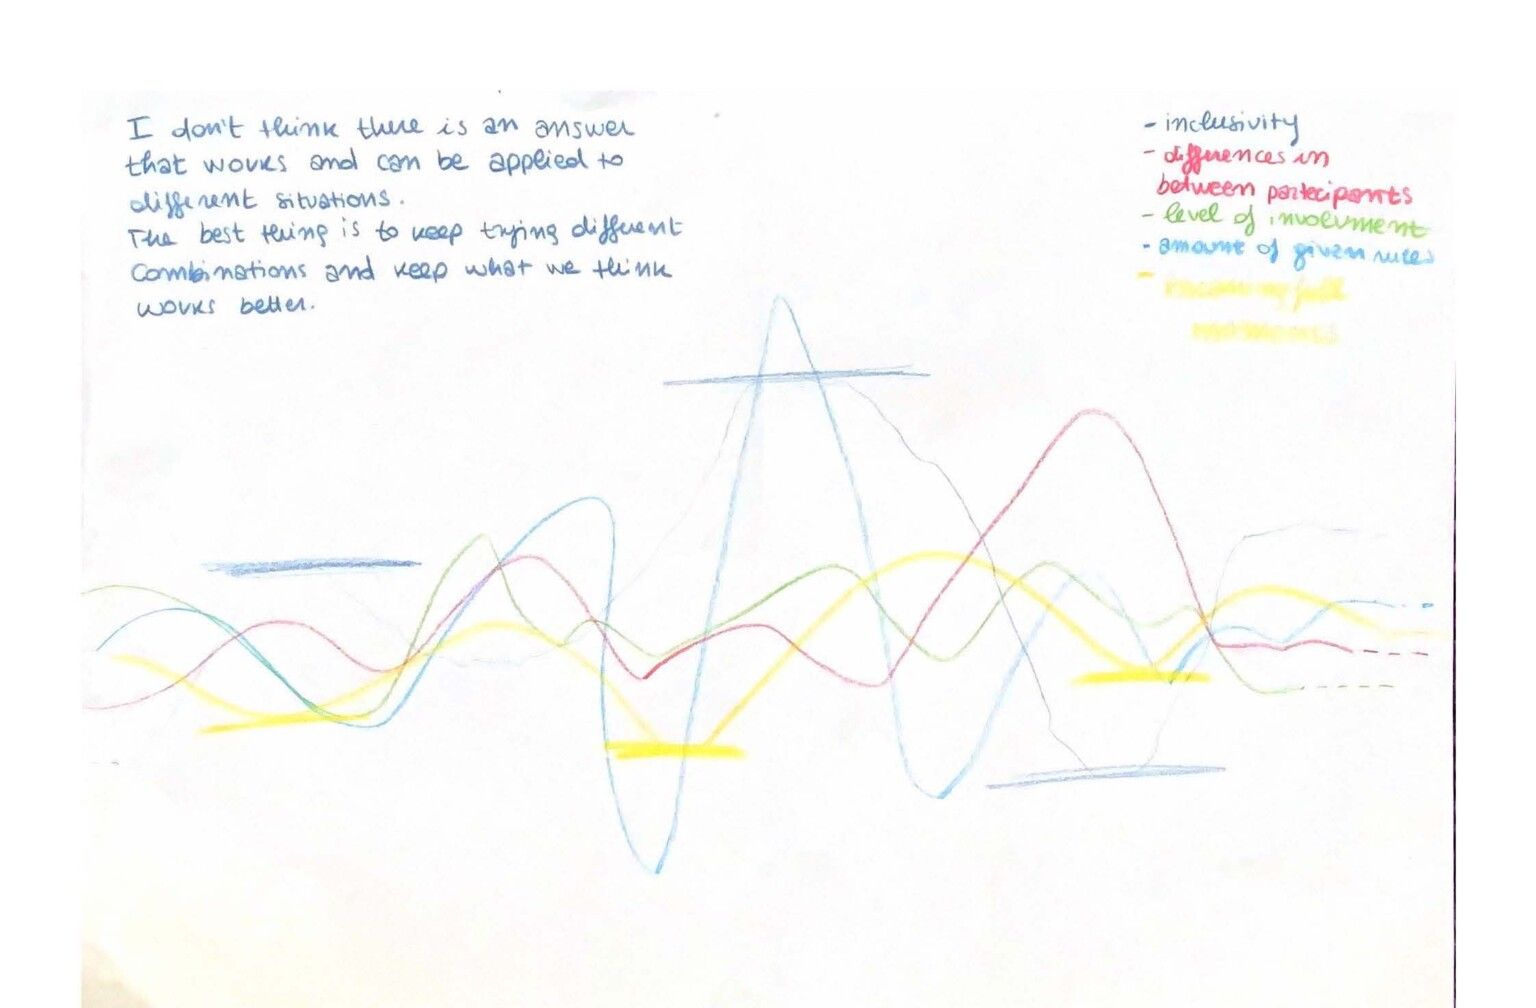 I don't think there is an answer
that works and can be applied to
different situations.
The best thing is to keep trying different
combinations and keep what we think
works better.
- inclusivity
- differences in
between partecipants
- level of involvment
- amount of given rules
-